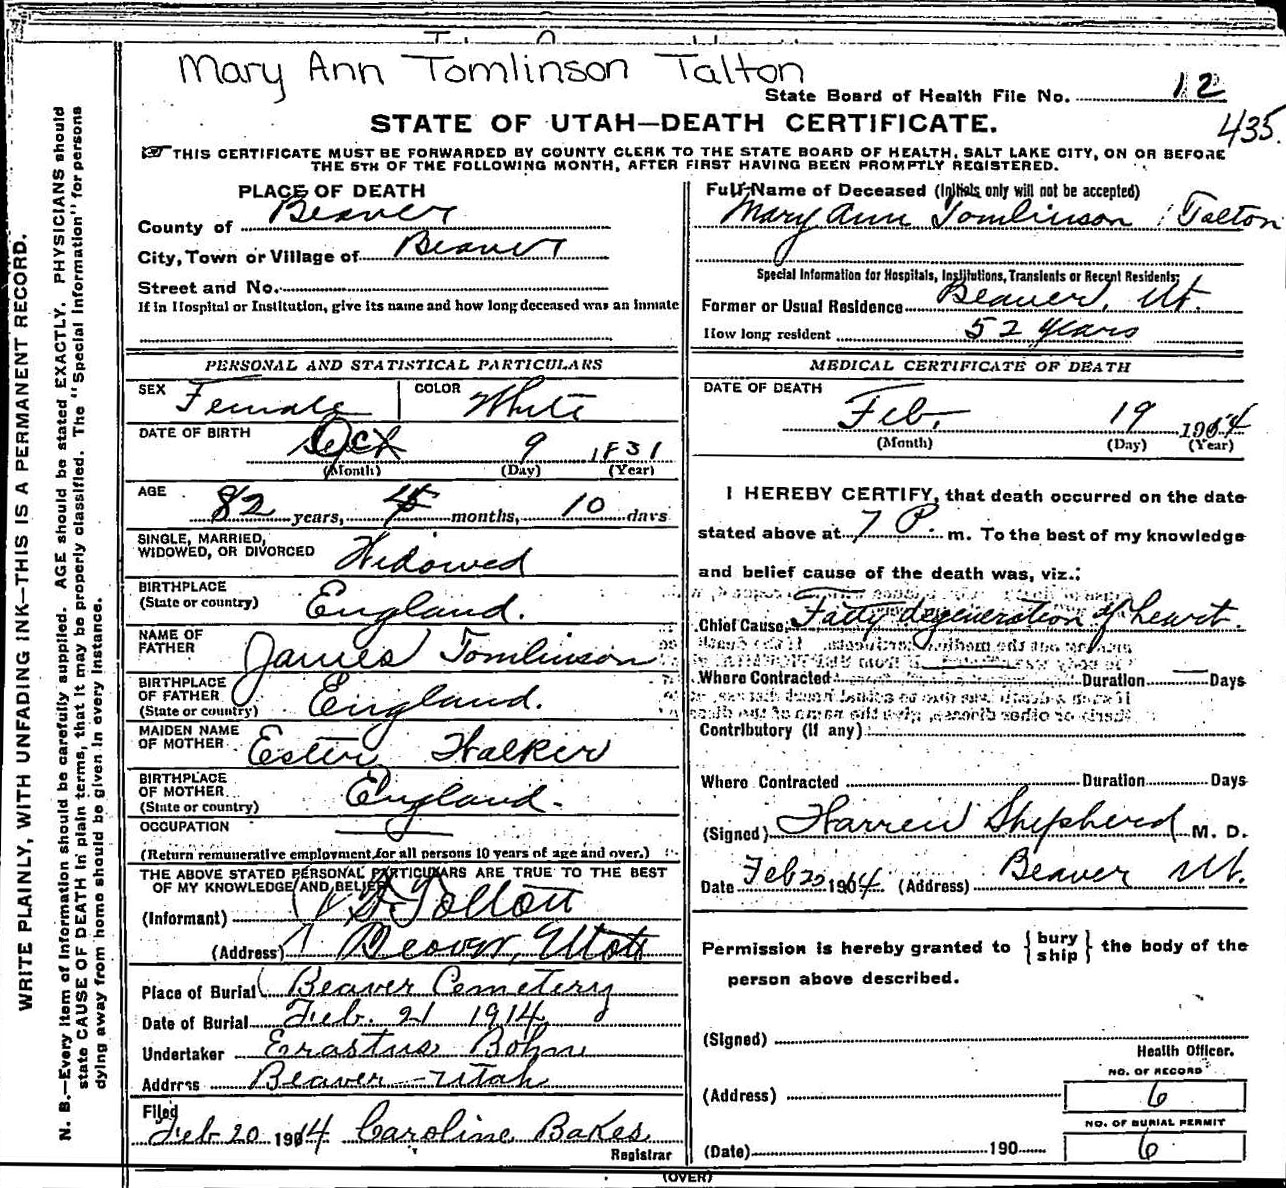 Mary Ann Tomlinson Talton
State Board of Health File No. 12
435.
STATE OF UTAH—DEATH CERTIFICATE.
THIS CERTIFICATE MUST BE FORWARDED BY COUNTY CLERK TO THE STATE BOARD OF HEALTH, SALT LAKE CITY, ON OR BEFORE
THE 5TH OF THE FOLLOWING MONTH, AFTER FIRST HAVING BEEN PROMPTLY REGISTERED.
WRITE PLAINLY, WITH UNFADING INK—THIS IS A PERMANENT RECORD.
N. B.—Every item of information should be carefully supplied. AGE should be stated EXACTLY. PHYSICIANS should
state CAUSE OF DEATH in plain terms, that it may be properly classified. The "Special Information" for persons
dying away from home should be given in every instance.
PLACE OF DEATH
County of Beaver
City, Town or Village of Beaver
Street and No.
If in Hospital or Institution, give its name and how long deceased was an inmate
PERSONAL AND STATISTICAL PARTICULARS
SEX Female COLOR White
DATE OF BIRTH Oct 9 1831
(Month) (Day) (Year)
AGE 82 years, 4 months, 10 days
SINGLE, MARRIED,
WIDOWED, OR DIVORCED Widowed
BIRTHPLACE
(State or country) England.
NAME OF
FATHER James Tomlinson
BIRTHPLACE
OF FATHER
(State or country) England.
MAIDEN NAME
OF MOTHER Ester Walker
BIRTHPLACE
OF MOTHER
(State or country) England.
OCCUPATION
(Return remunerative employment for all persons 10 years of age and over.)
THE ABOVE STATED PERSONAL PARTICULARS ARE TRUE TO THE BEST
OF MY KNOWLEDGE AND BELIEF
(Informant) Tolton
(Address) Beaver, Utah
Place of Burial Beaver Cemetery
Date of Burial Feb. 21 1914
Undertaker Erastus Bohn
Address Beaver - Utah
Filed
Feb 20 1914 Caroline Bakes
Registrar
Full Name of Deceased (Initials only will not be accepted)
Mary Ann Tomlinson Talton
Special Information for Hospitals, Institutions, Transients or Recent Residents:
Former or Usual Residence Beaver, Ut.
How long resident 52 years
MEDICAL CERTIFICATE OF DEATH
DATE OF DEATH
Feb. 19 1914
(Month) (Day) (Year)
I HEREBY CERTIFY, that death occurred on the date
stated above at 7 P. m. To the best of my knowledge
and belief cause of the death was, viz.:
Chief Cause: Fatty degeneration of heart.
Where Contracted Duration Days
Contributory (if any)
Where Contracted Duration Days
(Signed) Warren Shepherd M. D.
Date Feb 20 1914 (Address) Beaver Ut.
Permission is hereby granted to {bury
ship} the body of the
person above described.
(Signed)
Health Officer.
NO. OF RECORD
(Address) 6
NO. OF BURIAL PERMIT
(Date) 190 6
(OVER)